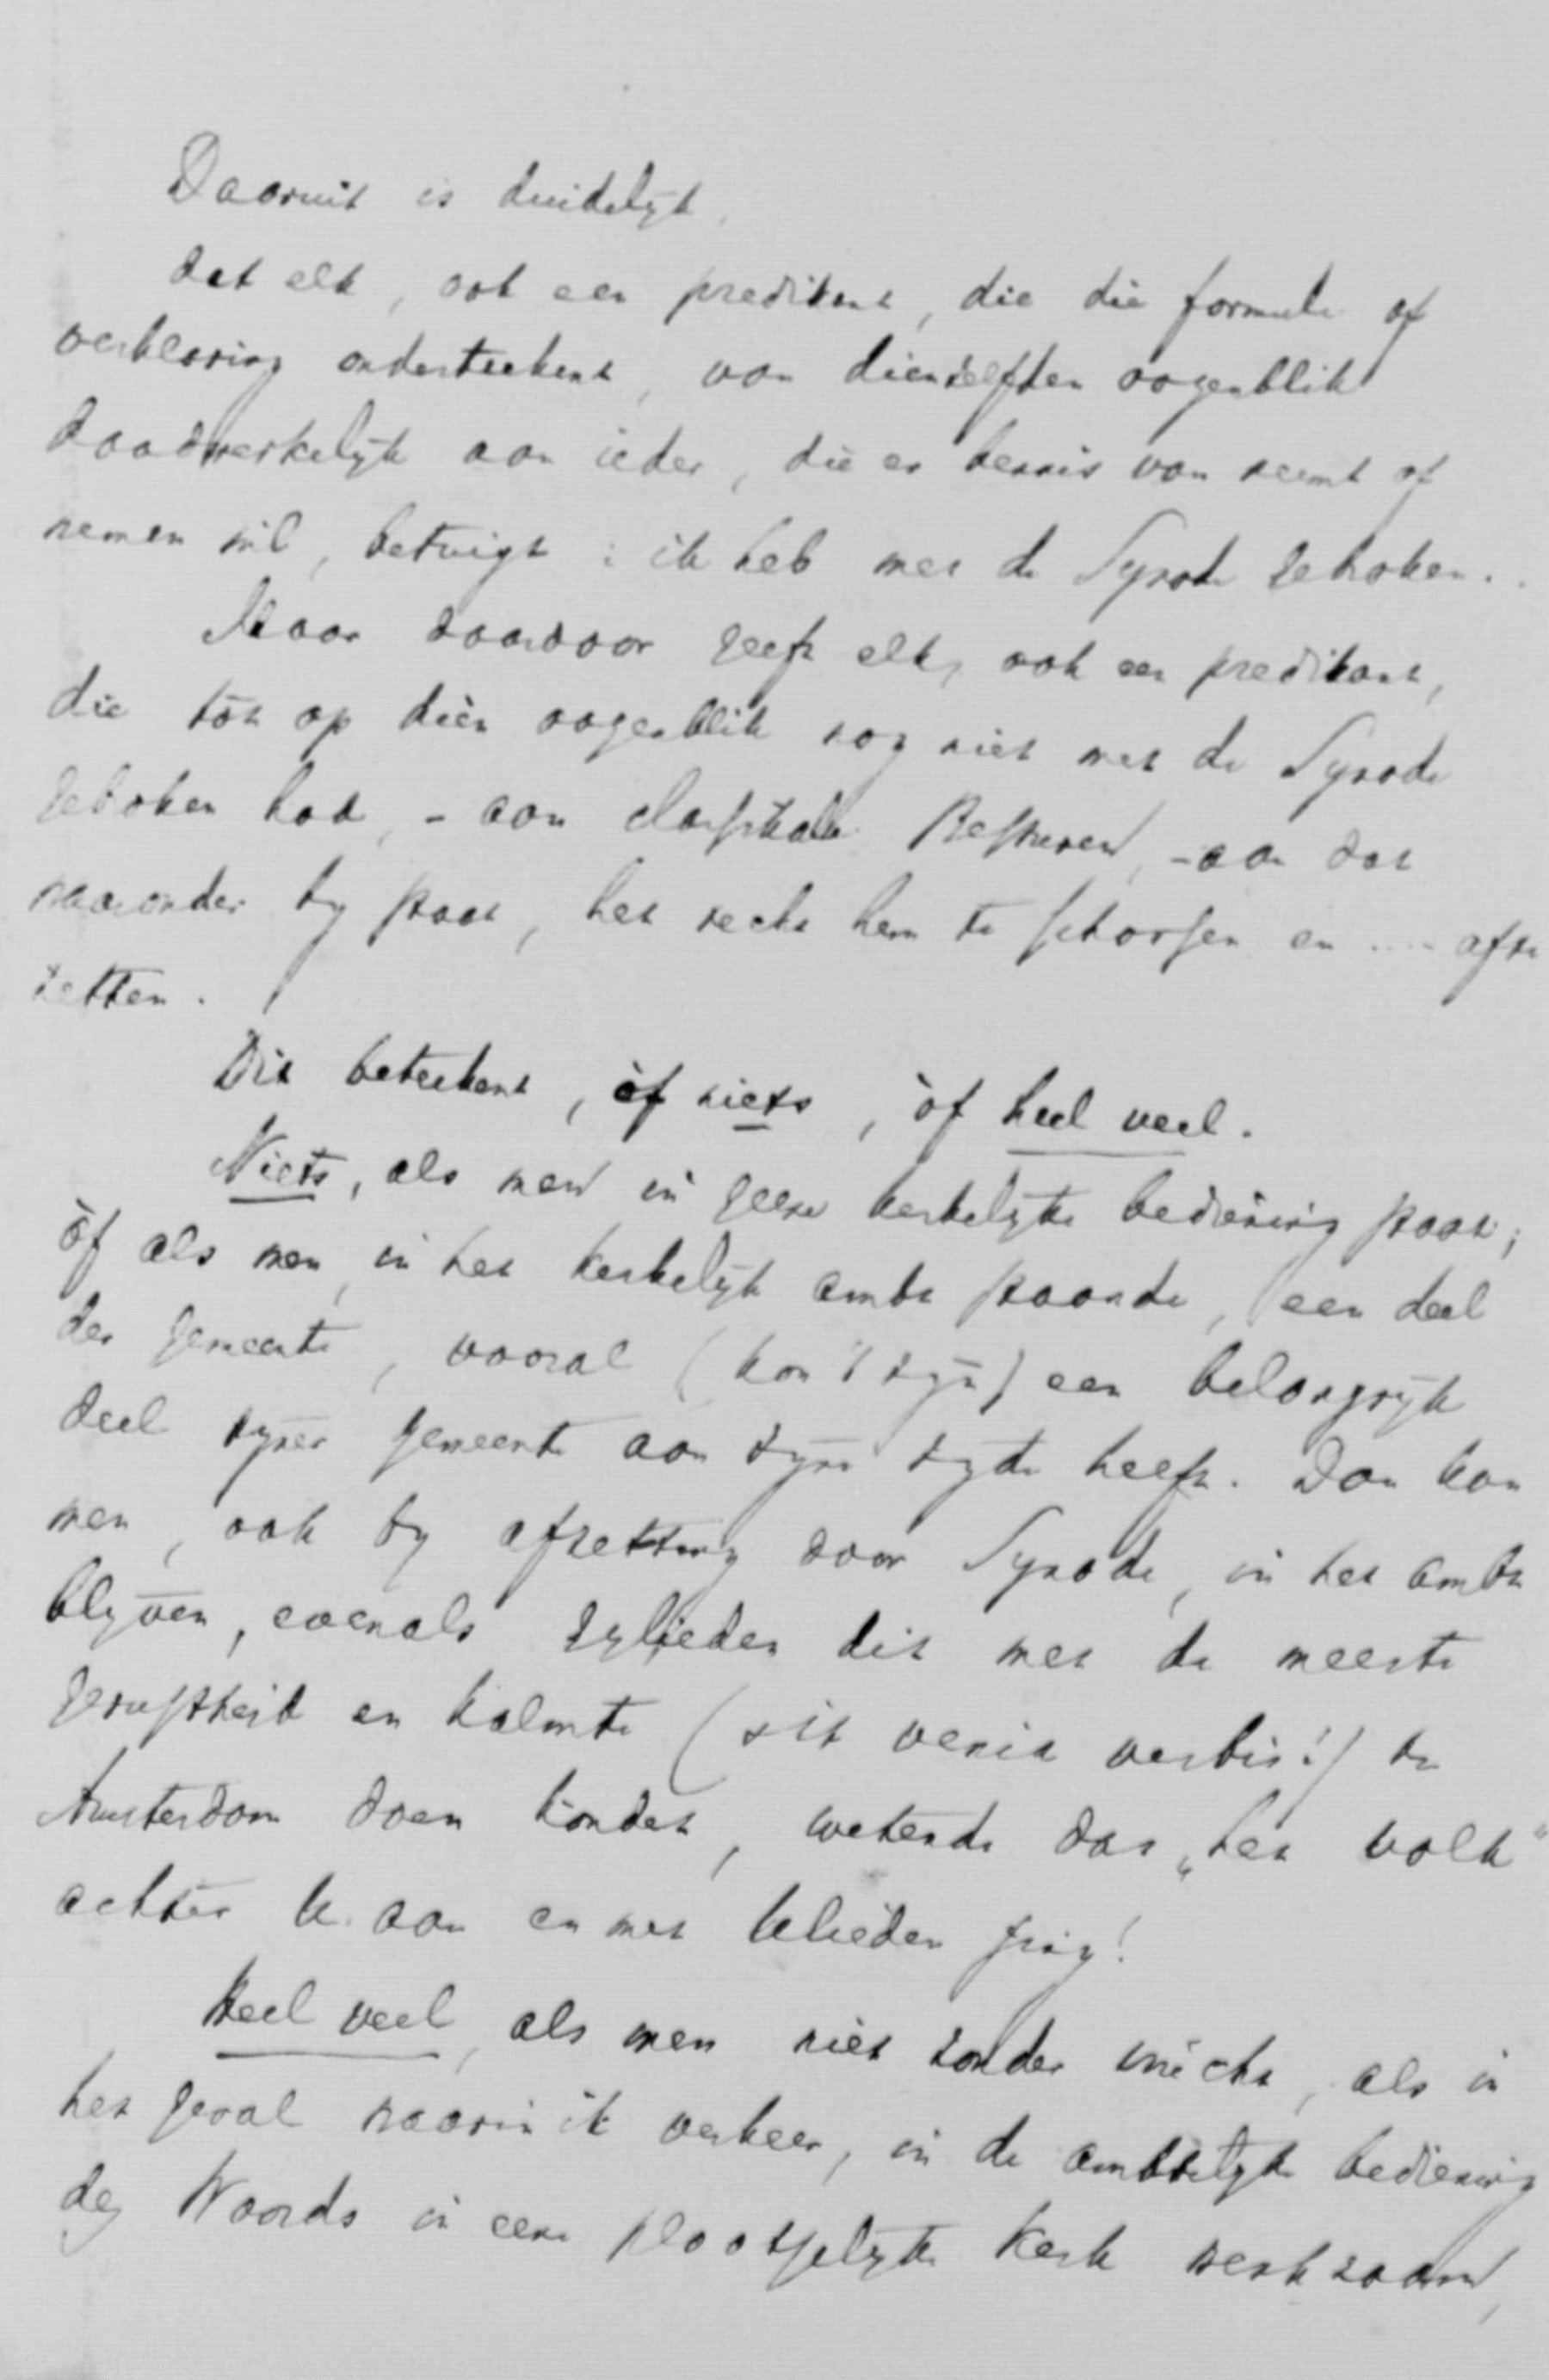 Daaruit is duidelijk,
dat elk, ook een predikant, die die formule of
verklaring onderteekent, van dienzelfden oogenblik
daadwerkelijk aan ieder, die er kennis van neemt of
nemen wil, betuigt: ik heb met de Synode gebroken.
Maar daardoor geeft elk, ook een predikant,
die tot op dièn oogenblik nog niet met de Synode
gebroken had, - aan classikale Besturen, - aan dat
waaronder hij staat, het recht hem te schorsen en .... af te
zetten.
Dit beteekent, òf niets, òf heel veel.
Niets, als men in geene kerkelijke bediening staat;
òf als men, in het kerkelijk ambt staande, een deel
der gemeente, vooral (kan 't zijn) een belangrijk
deel zijner gemeente aan zijne zijde heeft. Dan kan
men, ook bij afzetting door Synode, in het ambt
blijven, evenals gijlieden dit met de meeste
gerustheid en kalmte (sit venia verbis!) te
Amsterdam doen kondet, wetende dat „het volk"
achter U aan en met Ulieden ging!
Heel veel, als men niet zonder vrucht, als in
het geval waarin ik verkeer, in de ambtelijke bediening
des Woords in eene plaatselijke Kerk werkzaam,